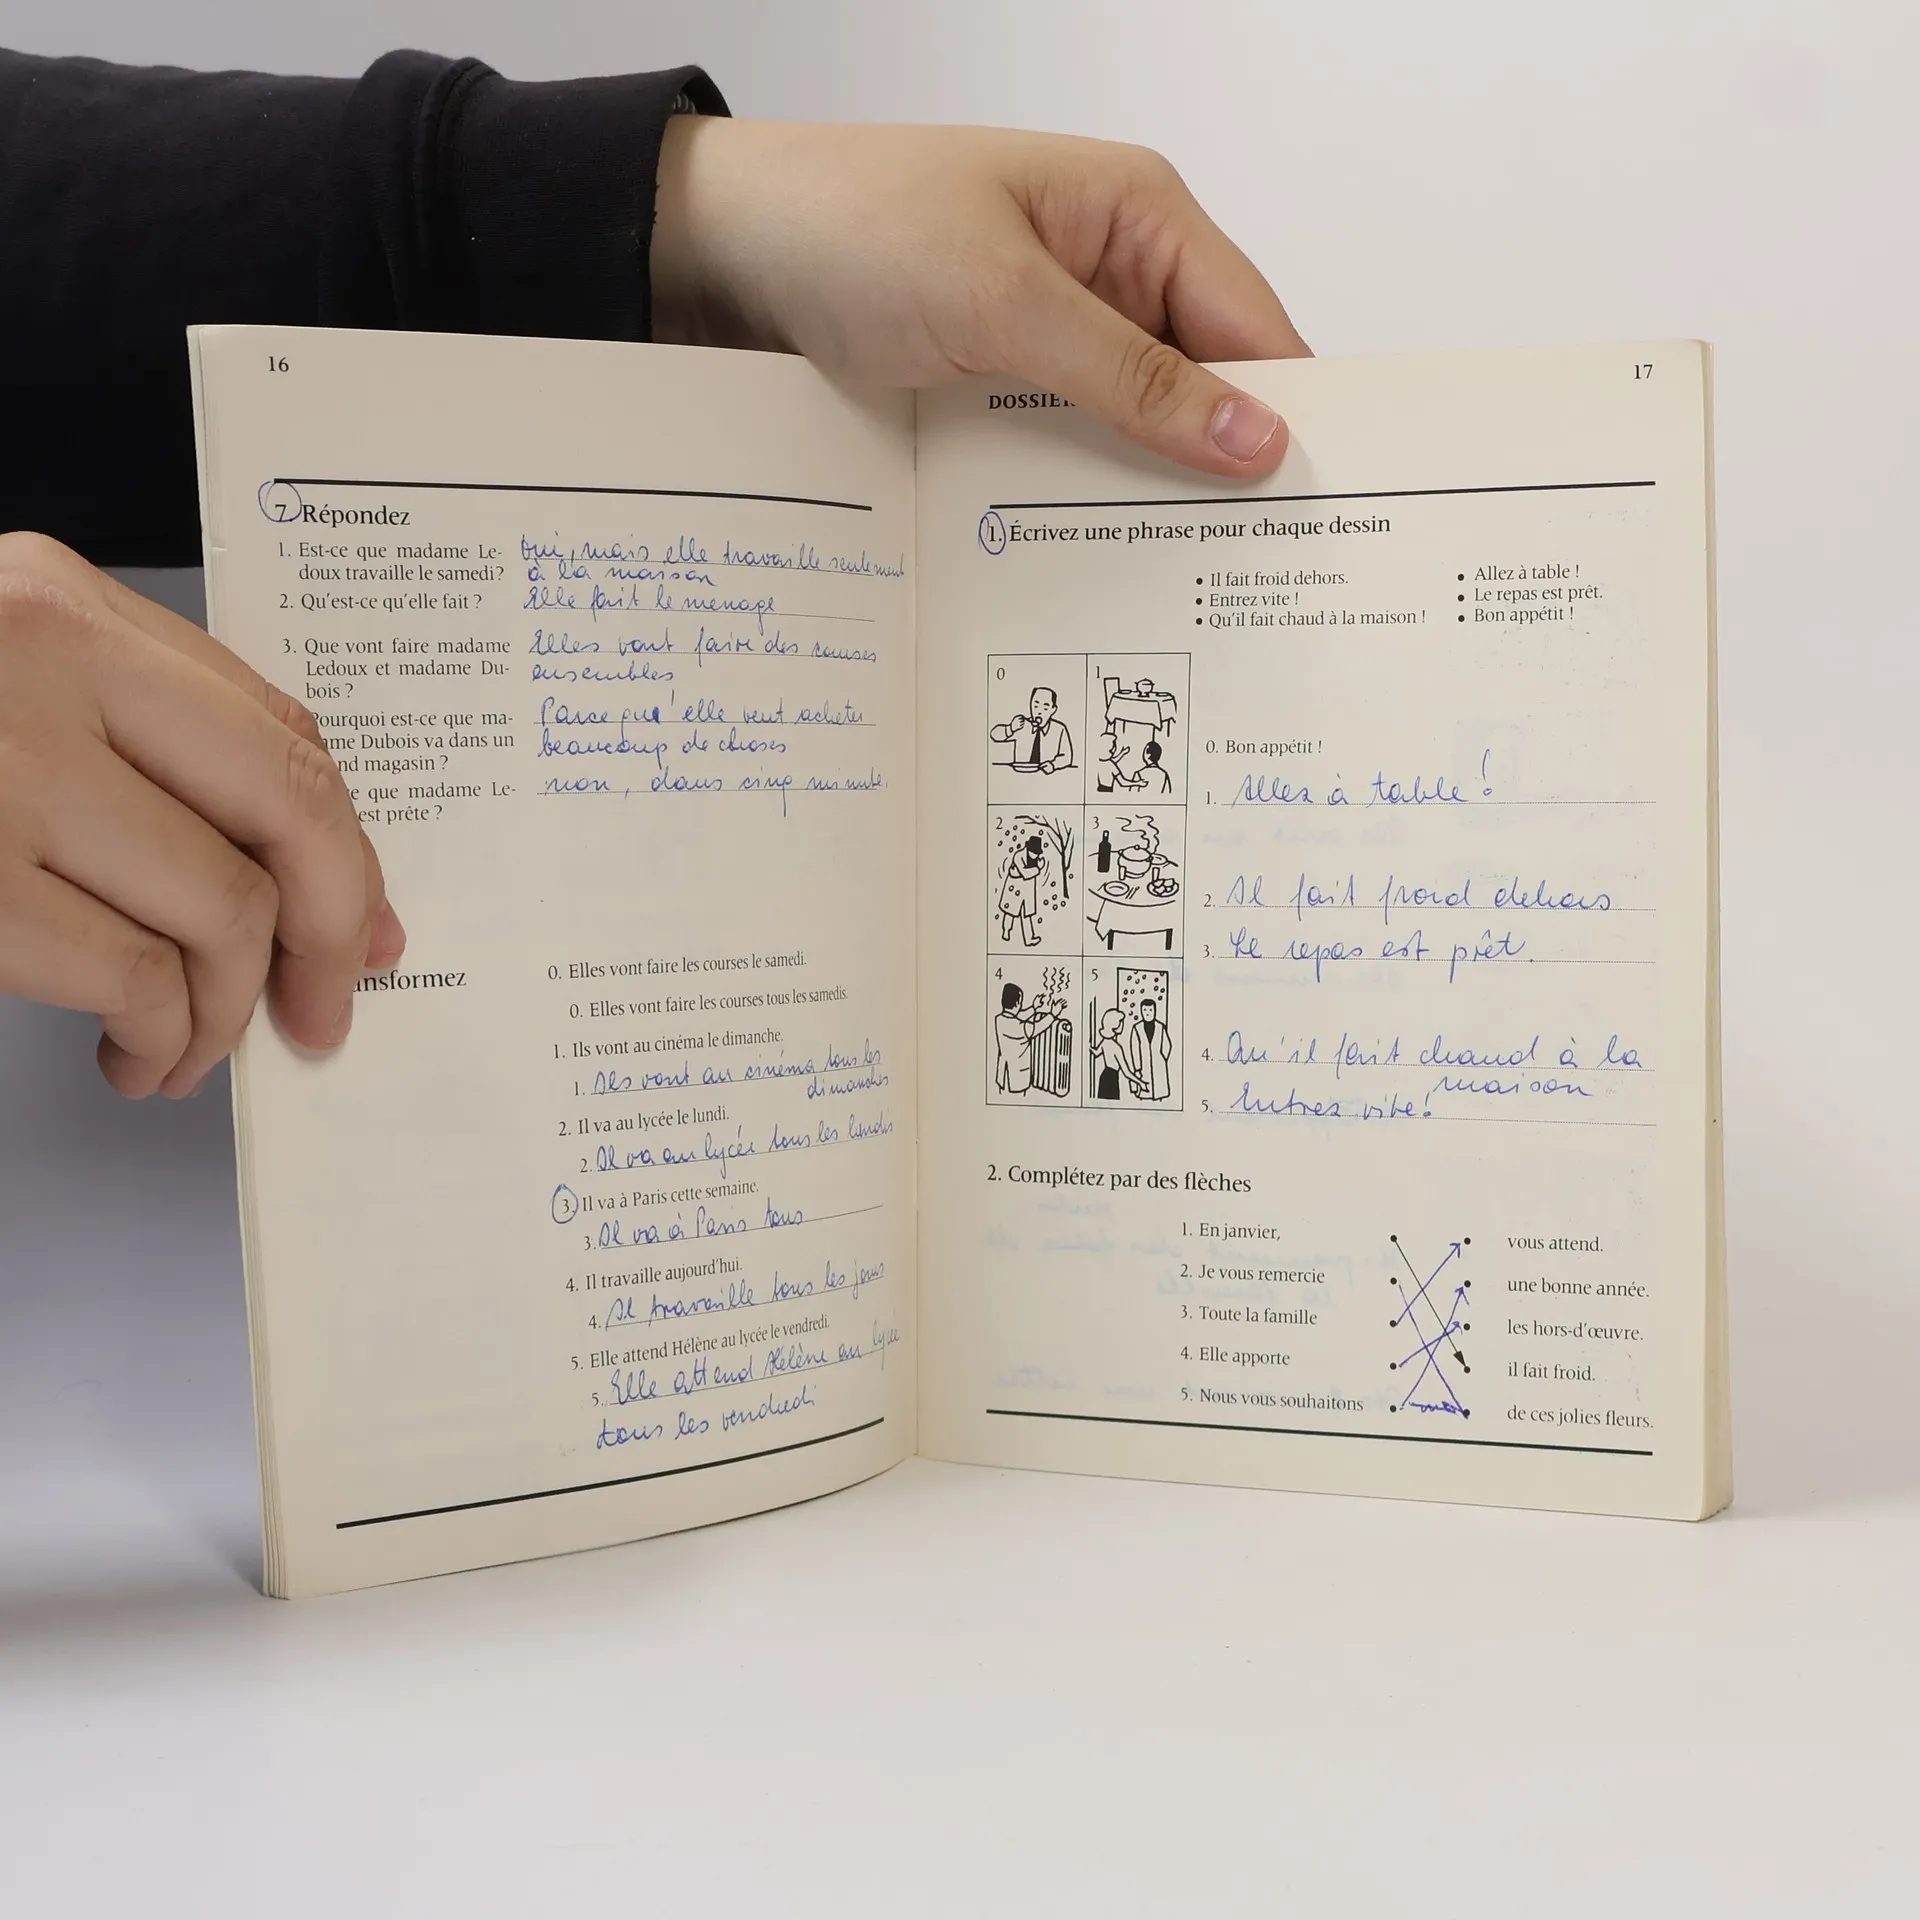 16
7. Répondez
1. Est-ce que madame Le-
doux travaille le samedi?
oui, mais elle travaille seulement
à la maison
2. Qu'est-ce qu'elle fait ?
Elle fait le menage
3. Que vont faire madame
Ledoux et madame Du-
bois ?
Elles vont faire des courses
ensembles
Pourquoi est-ce que ma-
me Dubois va dans un
nd magasin ?
Parce qu' elle veut acheter
beaucoup de choses
e que madame Le-
est prête ?
non, dans cinq minute.
ansformez
0. Elles vont faire les courses le samedi.
0. Elles vont faire les courses tous les samedis.
1. Ils vont au cinéma le dimanche.
1. Ils vont au cinéma tous les
dimanches
2. Il va au lycée le lundi.
2. Il va au lycée tous les lundis
3. Il va à Paris cette semaine.
3. Il va à Paris tous
4. Il travaille aujourd'hui.
4. Il travaille tous les jours
5. Elle attend Hélène au lycée le vendredi.
5. Elle attend Hélène au lycée
tous les vendredi
17
DOSSIER
1. Écrivez une phrase pour chaque dessin
• Il fait froid dehors.
• Entrez vite !
• Qu'il fait chaud à la maison !
• Allez à table !
• Le repas est prêt.
• Bon appétit !
0
1
2
3
4
5
0. Bon appétit !
1. Allez à table !
2. Il fait froid dehors
3. Le repas est prêt.
4. Qu'il fait chaud à la
maison
5. Entrez vite!
2. Complétez par des flèches
1. En janvier,
2. Je vous remercie
3. Toute la famille
4. Elle apporte
5. Nous vous souhaitons
vous attend.
une bonne année.
les hors-d'œuvre.
il fait froid.
de ces jolies fleurs.